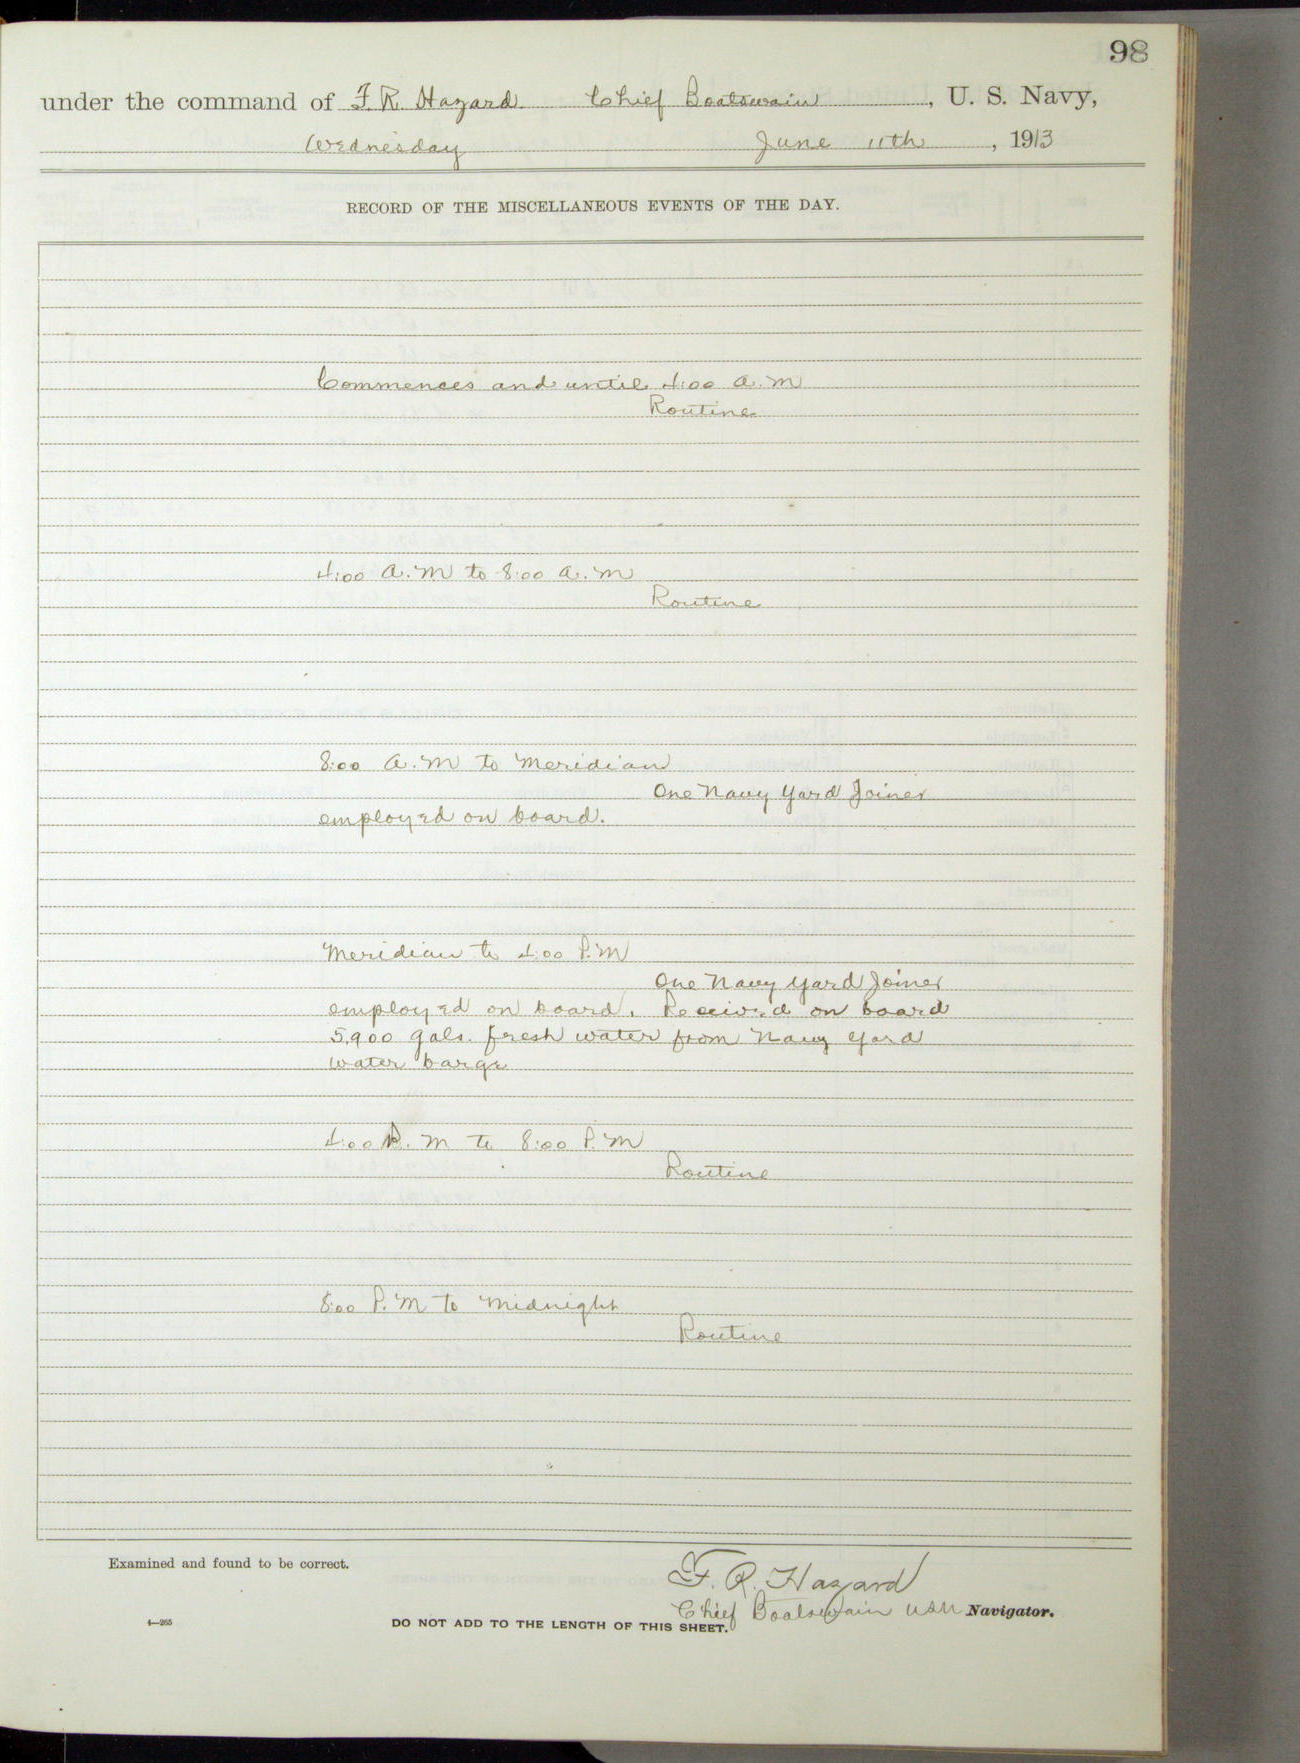 98
under the command of F. R. Hazard Chief Boatswain, U. S. Navy,
Wednesday June 11th, 1913
RECORD OF THE MISCELLANEOUS EVENTS OF THE DAY.
Commences and until 4:00 A.M
Routine
4:00 A.M to 8:00 A.M
Routine
8:00 A.M to Meridian
One Navy Yard Joiner
employed on board.
Meridian to 4:00 P.M
One Navy Yard Joiner
employed on board. Received on board
5,900 gals. fresh water from Navy Yard
water barge
4:00 P.M to 8:00 P.M
Routine
8:00 P.M to Midnight
Routine
Examined and found to be correct.
F. R. Hazard
Chief Boatswain USN Navigator.
4—265
DO NOT ADD TO THE LENGTH OF THIS SHEET.